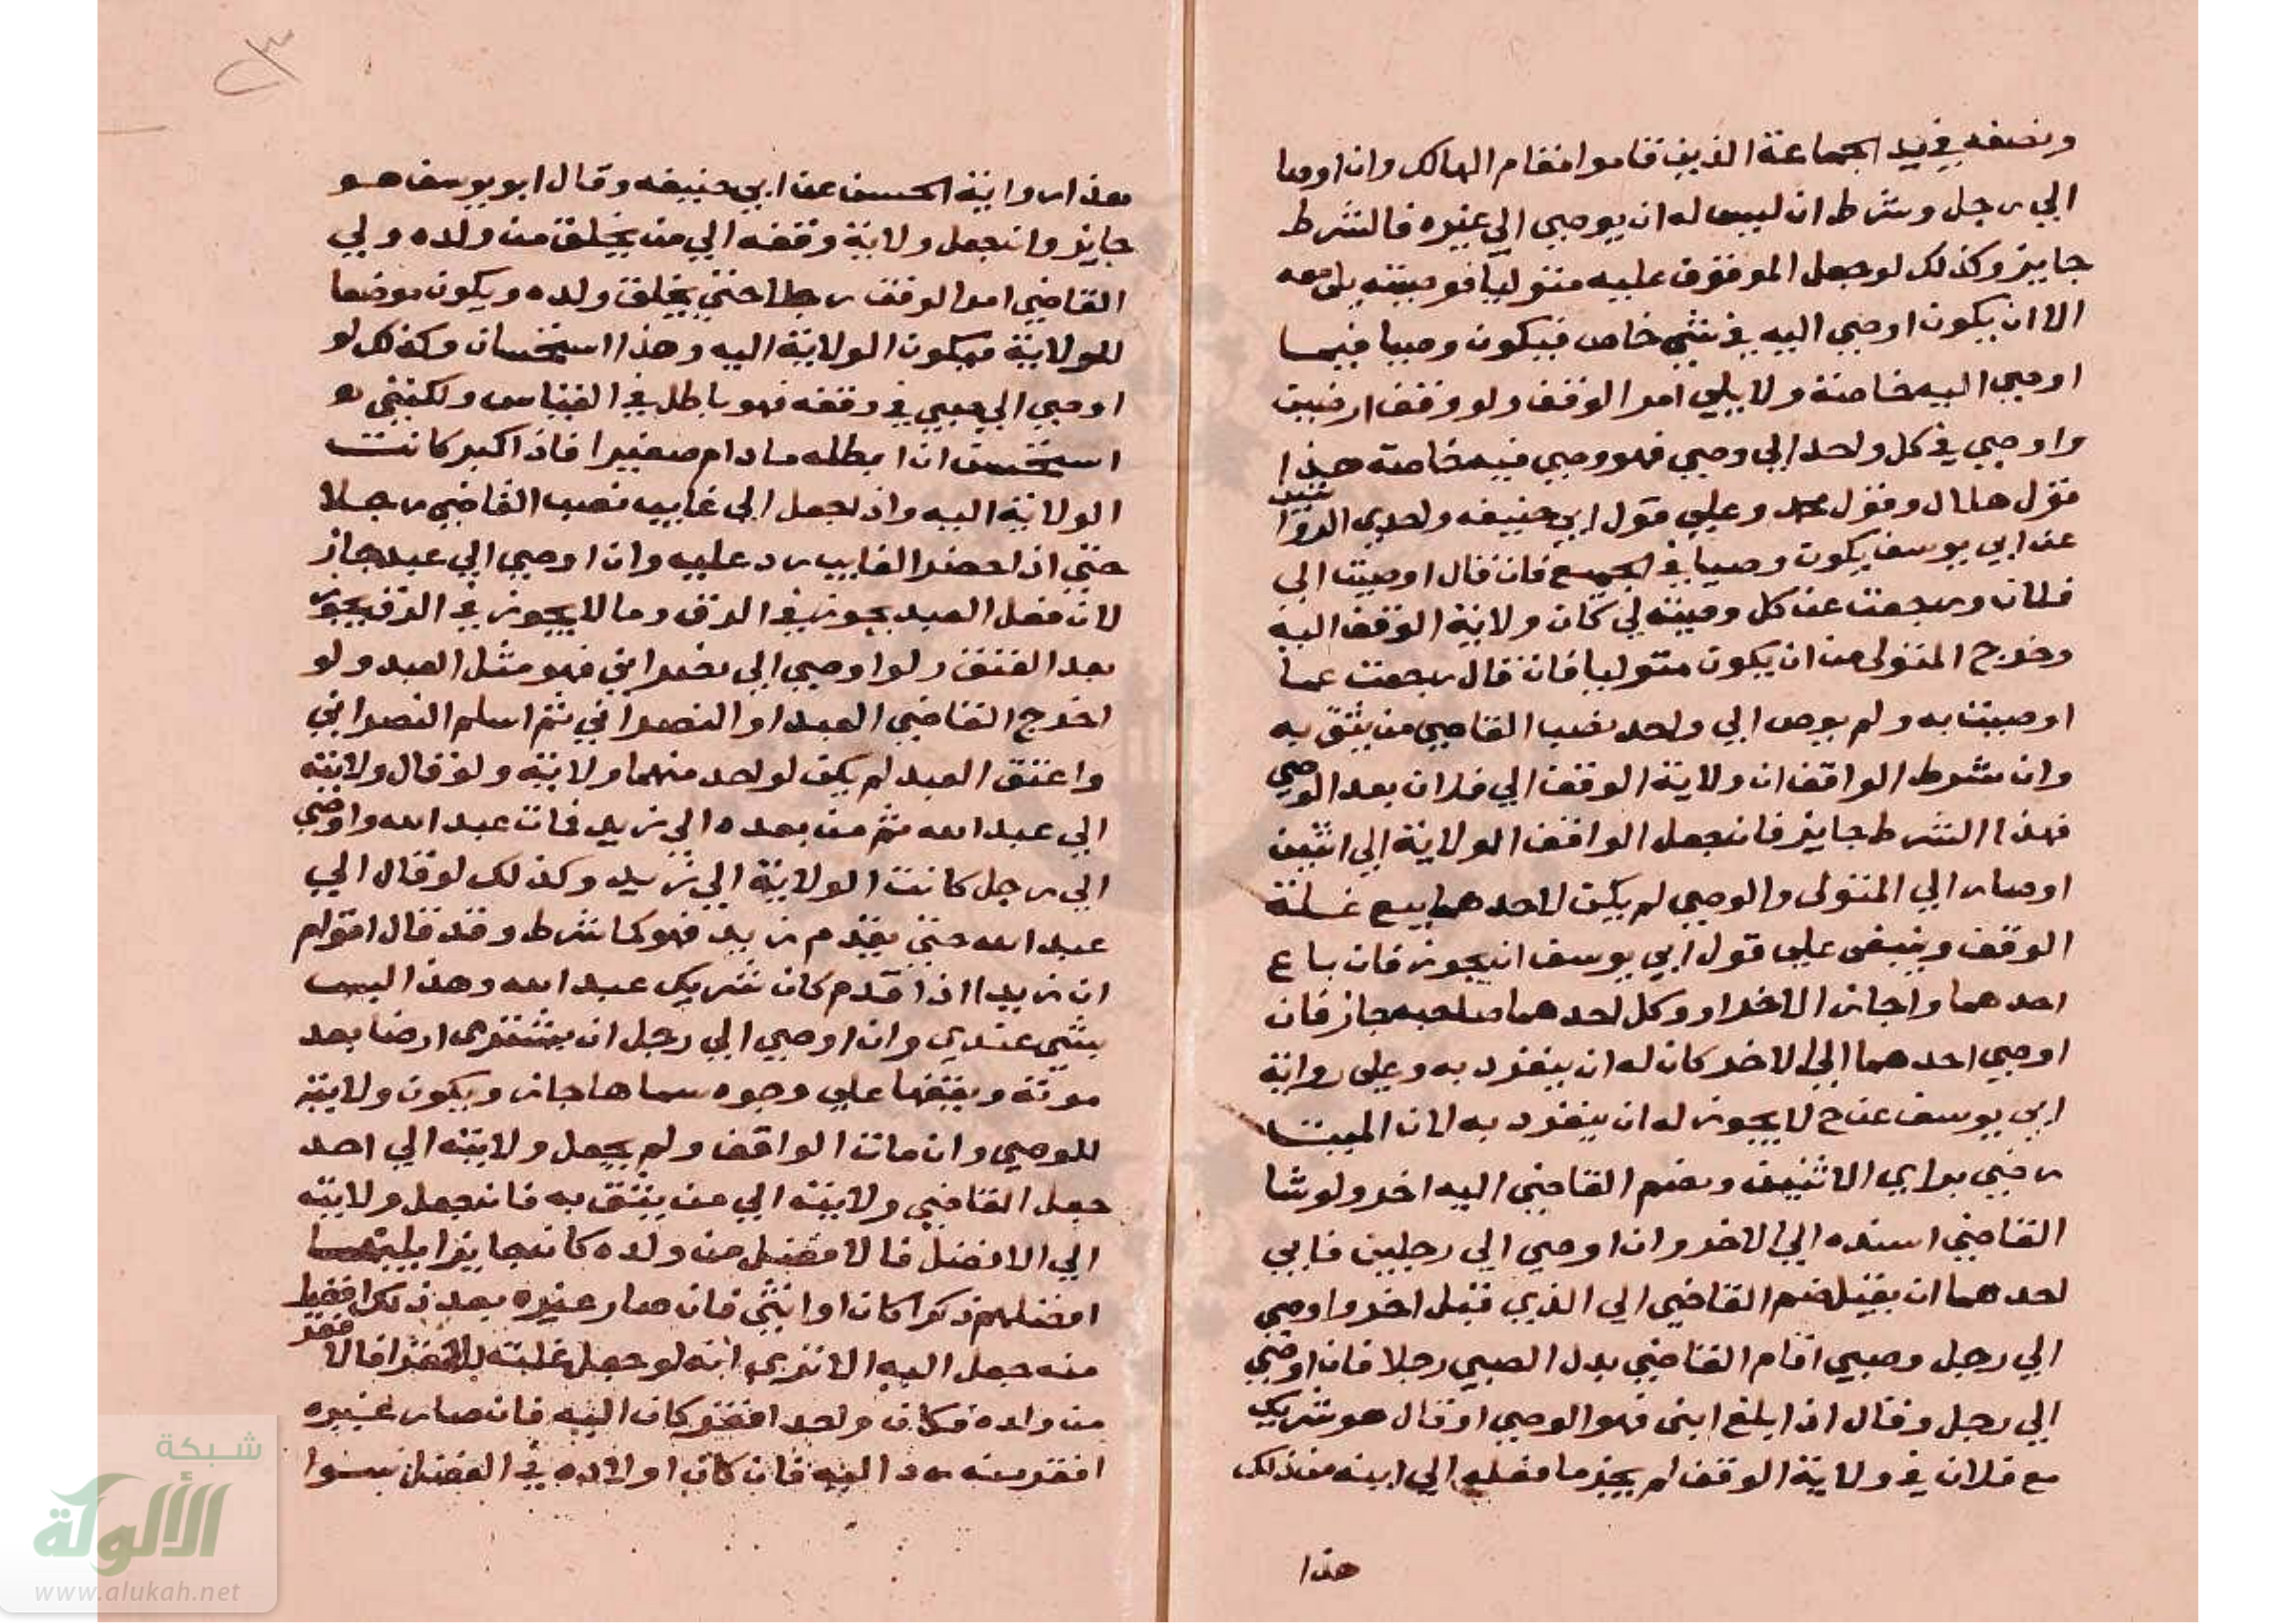 ونصفه في يد الجماعة الذين قاموا مقام الهالك وان اوصا
الي رجل وشرط ان ليس له ان يوصي الي غيره فالشرط
جايز وكذلك لو جعل الموقوف عليه متوليا فوصيته يلي معه
الا ان يكون اوصي اليه في شي خاص فيكون وصيا فيما
اوصي اليه خاصة ولا يلي امر الوقف ولو وقف ارضين
واوصي في كل واحد الي وصي فهو وصي فيه خاصة هذا
قول هلال وقول محمد وعلي قول ابي حنيفه واحدي الروايتين
عن ابي يوسف يكون وصيا في الجميع فان قال اوصيت الي
فلان ورجعت عن كل وصيته لي كان ولاية الوقف اليه
وخرج المتولي من ان يكون متوليا فان قال رجعت عما
اوصيت به ولم يوص الي واحد نصب القاضي من يثق به
وان شرط الواقف ان ولاية الوقف الي فلان بعد الوصي
فهذا الشرط جايز فان جعل الواقف الولاية الي اثنين
اوصار الي المتولي والوصي لم يكن لاحدهما بيع غلة
الوقف وينبغي علي قول ابي يوسف ان يجوز فان باع
احدهما واجاز الاخر او وكل احدهما صاحبه جاز فان
اوصي احدهما الي الاخر كان له ان ينفرد به وعلي رواية
ابي يوسف عن ح لا يجوز له ان ينفرد به لان الميت
رضي براي الاثنين ويضم القاضي اليه اخر ولو شا
القاضي اسنده الي الاخر وان اوصي الي رجلين فابي
احدهما ان يقبل ضم القاضي الي الذي قبل اخر واوصي
الي رجل وصبي اقام القاضي بدل الصبي رجلا فان اوصي
الي رجل وقال اذا بلغ ابني فهو الوصي او قال هو شريك
مع فلان في ولاية الوقف لم يجز ما فعله الي ابنه من ذلك
هذا
هذا رواية الحسن عن ابي حنيفه وقال ابو يوسف هو
جايز وان جعل ولاية وقفه الي من يخلق من ولده ولي
القاضي امر الوقف رجلا حتي يخلق ولده ويكون موضعا
للولاية فيكون الولاية اليه وهذا استحسان وكذلك لو
اوصي الي صبي في وقفه فهو باطل في القياس ولكنني
استحسن ان ابطله ما دام صغيرا فاذا كبر كانت
الولاية اليه واذا جعل الي غايب نصب القاضي رجلا
حتي اذا حضر الغايب رد عليه وان اوصي الي عبد جاز
لان فعل العبد يجوز في الرق وما لا يجوز في الرق يجوز
بعد العتق ولو اوصي الي نصراني فهو مثل العبد ولو
اخرج القاضي العبد او النصراني ثم اسلم النصراني
واعتق العبد لم يكن لواحد منهما ولاية ولو قال ولايته
الي عبد الله ثم من بعده الي زيد فمات عبد الله واوصي
الي رجل كانت الولاية الي زيد وكذلك لو قال الي
عبد الله حتي يقدم زيد فهو كما شرط وقد قال اقوام
ان زيدا اذا قدم كان شريك عبد الله وهذا ليس
بشي عندي وان اوصي الي رجل ان يشتري ارضا بعد
موته ويقفها علي وجوه سماها جاز ويكون ولايته
للوصي وان مات الواقف ولم يجعل ولايته الي احد
جعل القاضي ولايته الي من يثق به فان جعل ولايته
الي الافضل فالافضل من ولده كان جايزا يليها
افضلهم ذكرا كان او انثي فان صار غيره بعد ذلك افضل
منه جعل اليه الا تري انه لو جعل غلته للافقر فالافقر
من ولده فكان واحد افقر كان اليه فان صار غيره
افقر منه رد اليه فان كان اولاده في الفضل سوا
شبكة
الألوكة
www.alukah.net